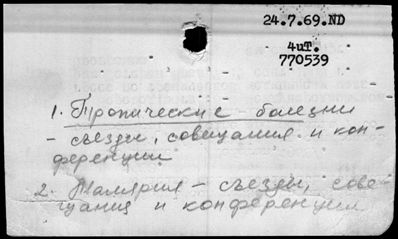 24.7.69.ND
4иТ.
770539
1. Тропические болезни
- съезды, совещания и кон-
ференции
2. Малярия - съезды, сове-
щания и конференции